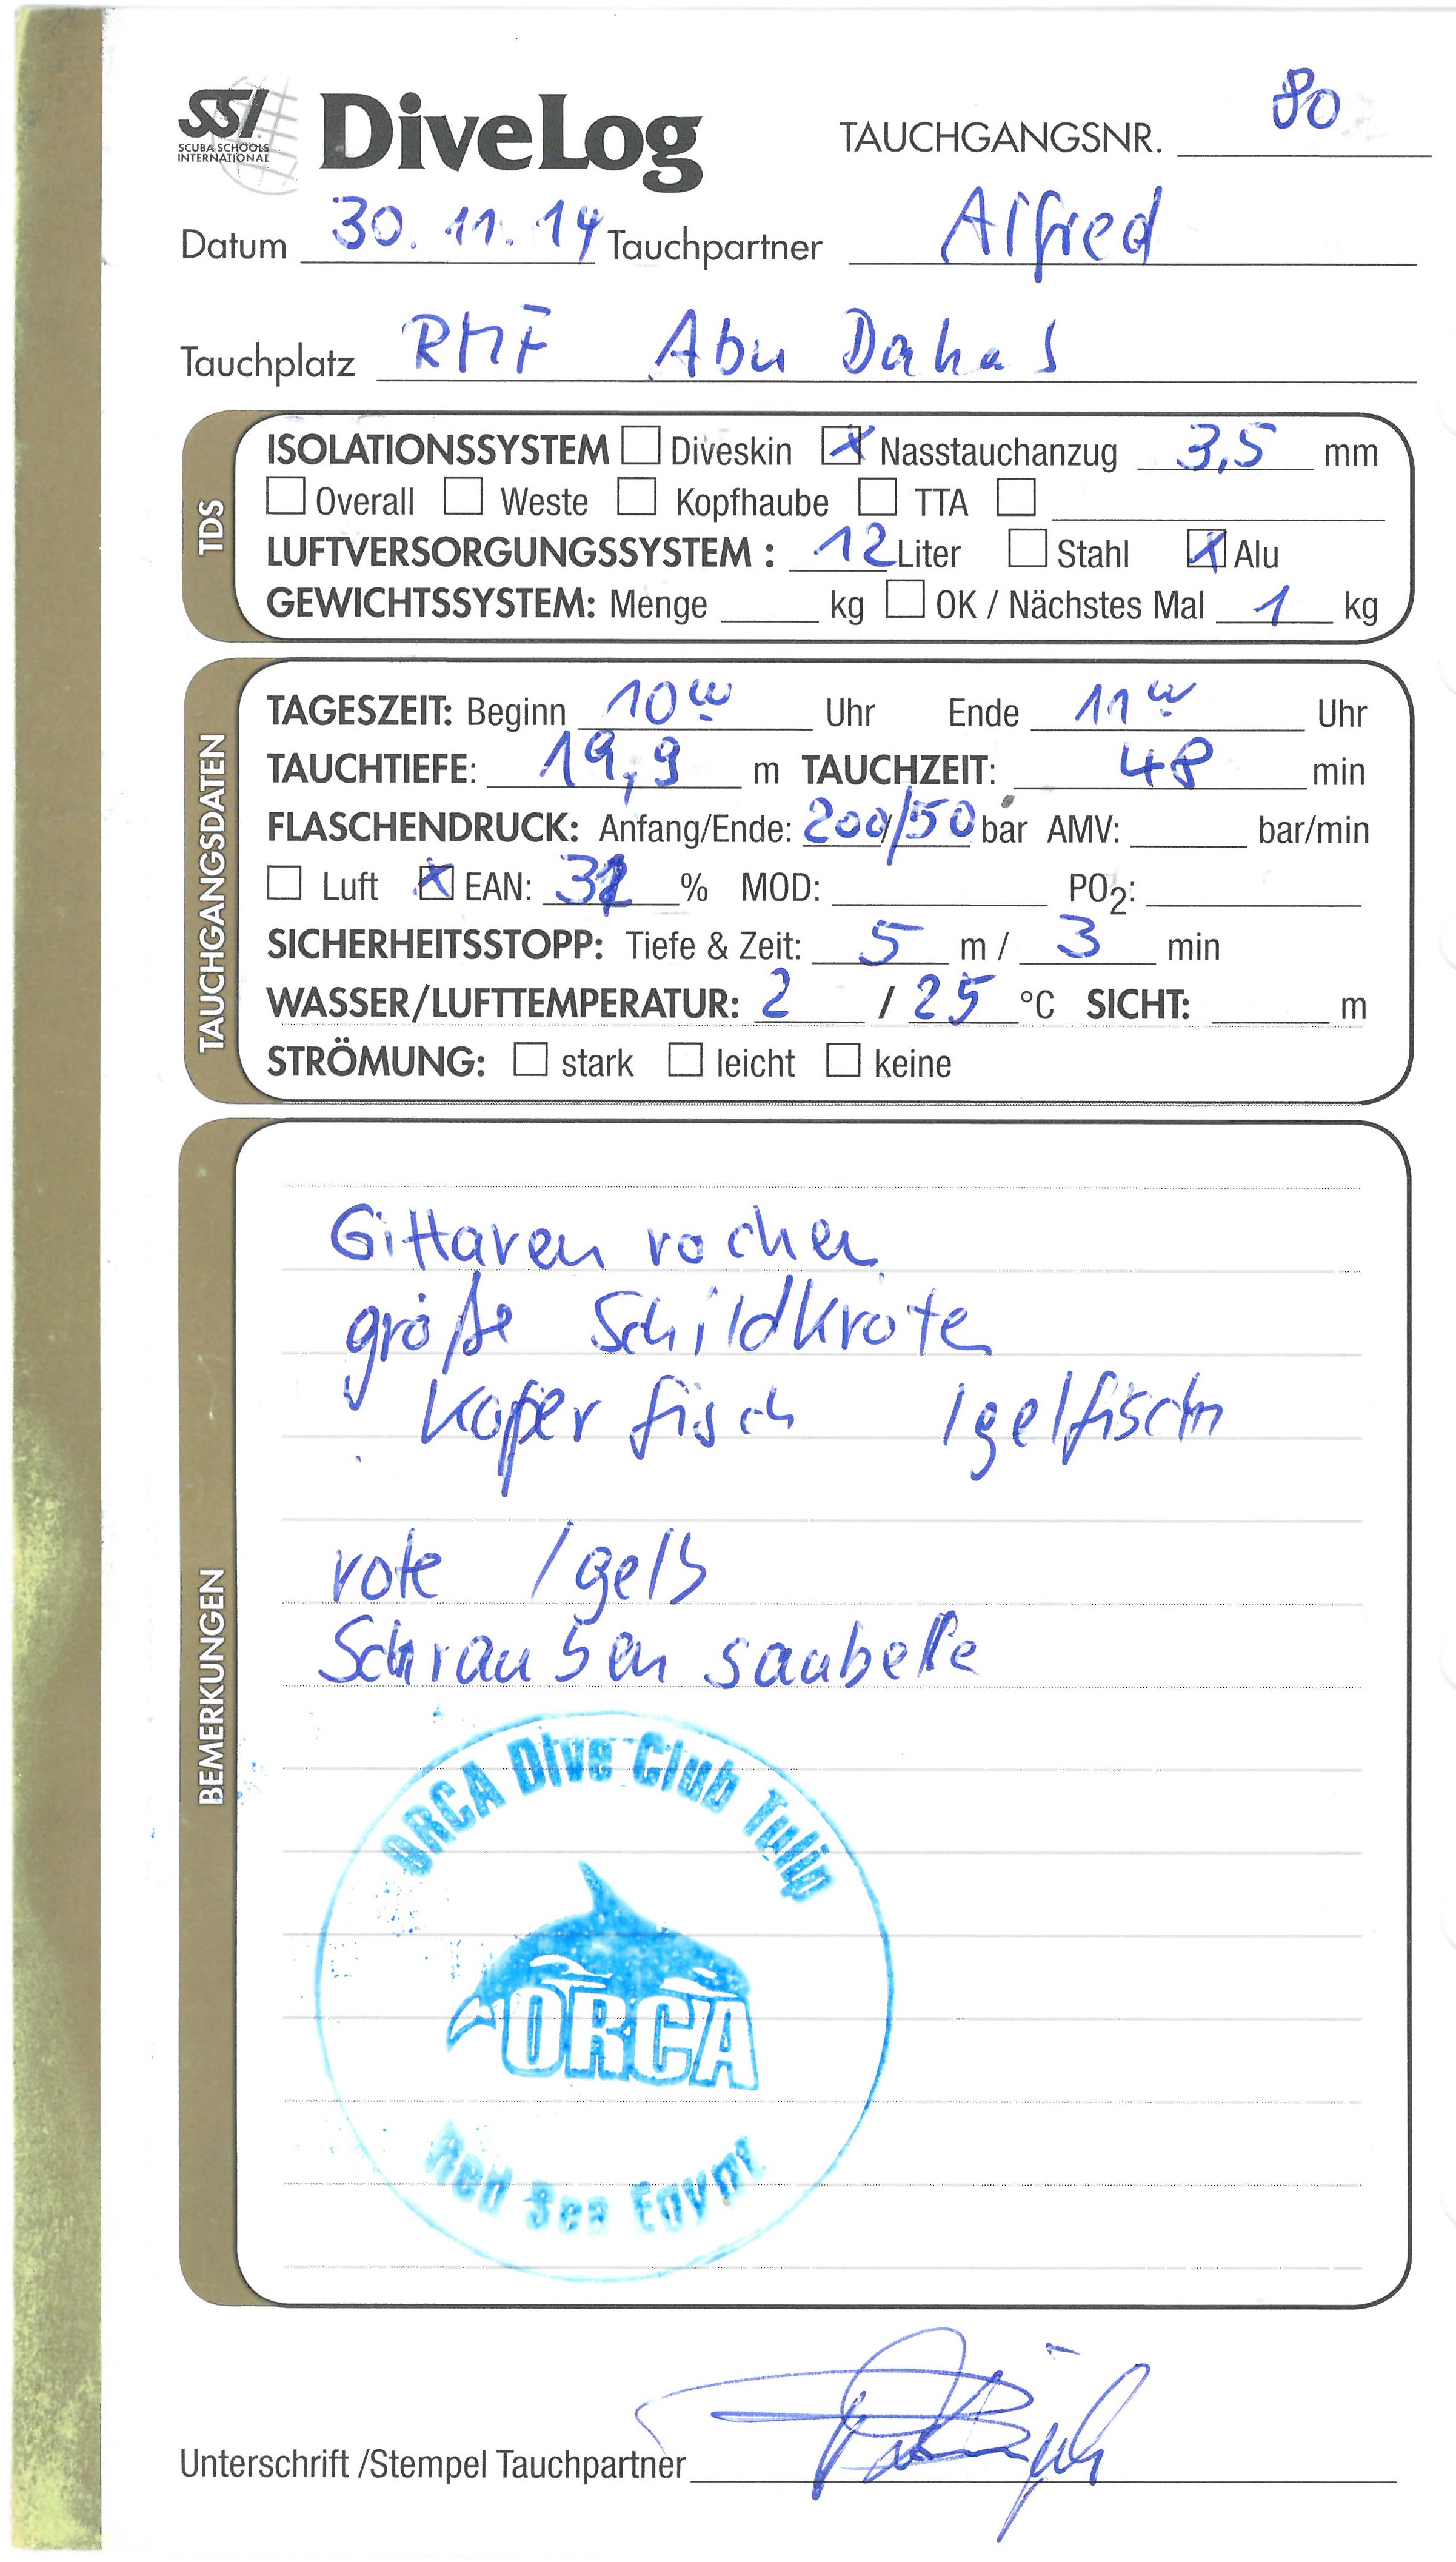 SSI DiveLog TAUCHGANGSNR. 80
SCUBA SCHOOLS
INTERNATIONAL
Datum 30. 11. 14 Tauchpartner Alfred
Tauchplatz RMF Abu Dahas
TDS
ISOLATIONSSYSTEM Diveskin X Nasstauchanzug 3,5 mm
Overall Weste Kopfhaube TTA
LUFTVERSORGUNGSSYSTEM : 12 Liter Stahl X Alu
GEWICHTSSYSTEM: Menge kg OK / Nächstes Mal 1 kg
TAUCHGANGSDATEN
TAGESZEIT: Beginn 10 Uhr Ende 11 Uhr
TAUCHTIEFE: 19,9 m TAUCHZEIT: 48 min
FLASCHENDRUCK: Anfang/Ende: 200/50 bar AMV: bar/min
Luft X EAN: % MOD: PO2:
SICHERHEITSSTOPP: Tiefe & Zeit: 5 m / 3 min
WASSER/LUFTTEMPERATUR: 2 / 25 °C SICHT: m
STRÖMUNG: stark leicht keine
BEMERKUNGEN
Gittaren rochen
große Schildkröte
Kofferfisch Igelfisch
rote Igels
Schrauben saubelle
ORCA Dive Club Tulip
ORCA
Red Sea Egypt
Unterschrift /Stempel Tauchpartner